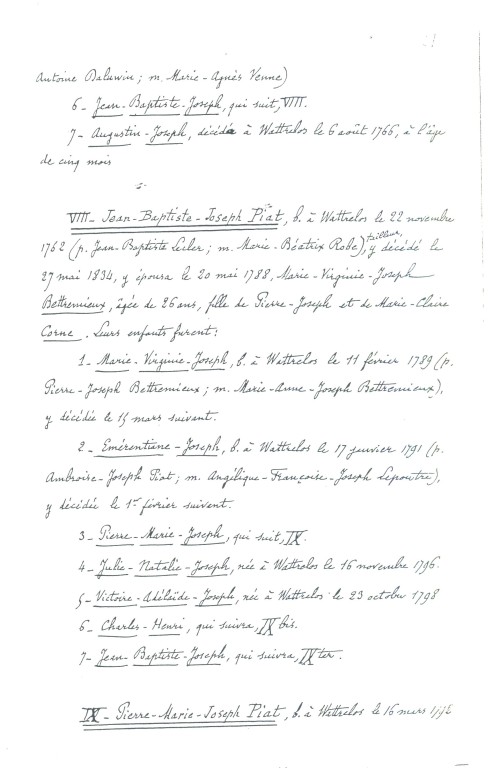 Antoine Baluwin ; m. Marie-Agnès Venne)
6 - Jean-Baptiste-Joseph, qui suit, VIII.
7 - Augustin-Joseph, décédé à Wattrelos le 6 août 1766, à l'âge
de cinq mois
VIII - Jean-Baptiste-Joseph Piat, b. à Wattrelos le 22 novembre
1762 (p. Jean-Baptiste Lecler ; m. Marie-Béatrix Robe), tailleur, y décédé le
27 mai 1834, y épousa le 20 mai 1788, Marie-Virginie-Joseph
Bettremieux, âgée de 26 ans, fille de Pierre-Joseph et de Marie-Claire
Corne. Leurs enfants furent :
1 - Marie-Virginie-Joseph, b. à Wattrelos le 11 février 1789 (p.
Pierre-Joseph Bettremieux ; m. Marie-Anne-Joseph Bettremieux),
y décédée le 15 mars suivant.
2 - Emérentiane-Joseph, b. à Wattrelos le 17 janvier 1791 (p.
Ambroise-Joseph Piat ; m. Angélique-Françoise-Joseph Lepoutre),
y décédée le 1er février suivent.
3 - Pierre-Marie-Joseph, qui suit, IX.
4 - Julie-Natalie-Joseph, née à Wattrelos le 16 novembre 1796.
5 - Victoire-Adélaïde-Joseph, née à Wattrelos le 23 octobre 1798
6 - Charles-Henri, qui suivra, IX bis.
7 - Jean-Baptiste-Joseph, qui suivra, IX ter.
IX - Pierre-Marie-Joseph Piat, b. à Wattrelos le 16 mars